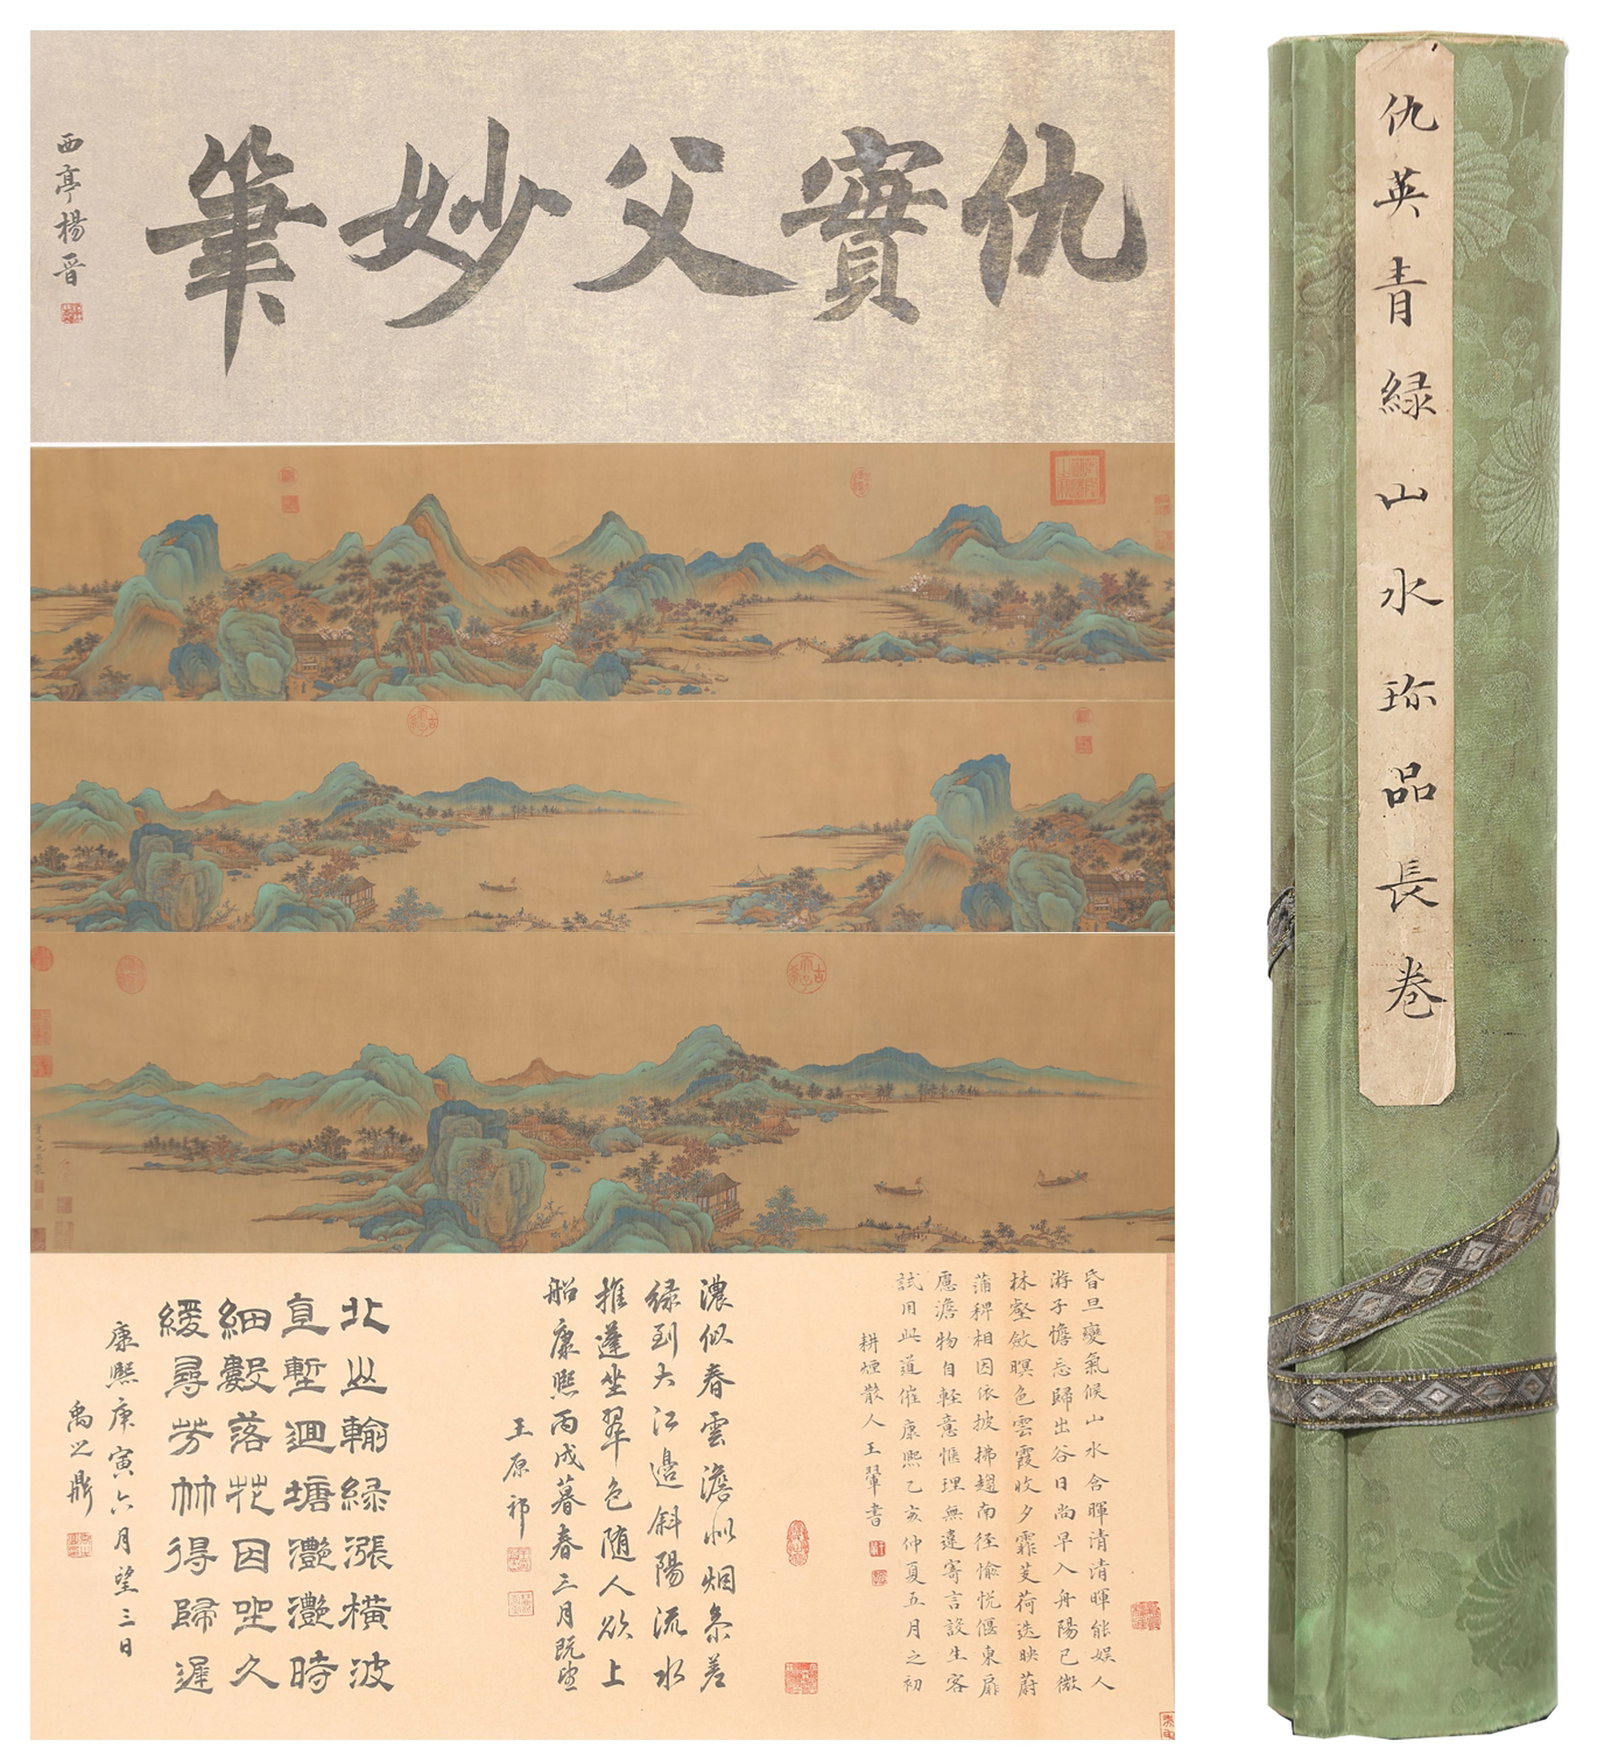 仇實父妙筆
西亭楊晉
昏旦變氣候山水含暉清清暉能娱人
游子憺忘歸出谷日尚早入舟陽已微
林壑斂暝色雲霞收夕霏芰荷迭映蔚
蒲稗相因依披拂趨南徑愉悅偃東扉
慮澹物自輕意愜理無違寄言設生客
試用此道催康熙乙亥仲夏五月之初
耕煙散人王翬書
濃似春雲澹似烟參差
绿到大江邉斜陽流水
推蓬坐翠色随人欲上
船康熙丙戌暮春三月既望
王原祁
北山輸綠漲横波
直塹迴塘灔灔時
細數落花因坐久
緩尋芳林得歸遲
康熙庚寅六月望三日
禹之鼎
仇英青緑山水珎品長卷